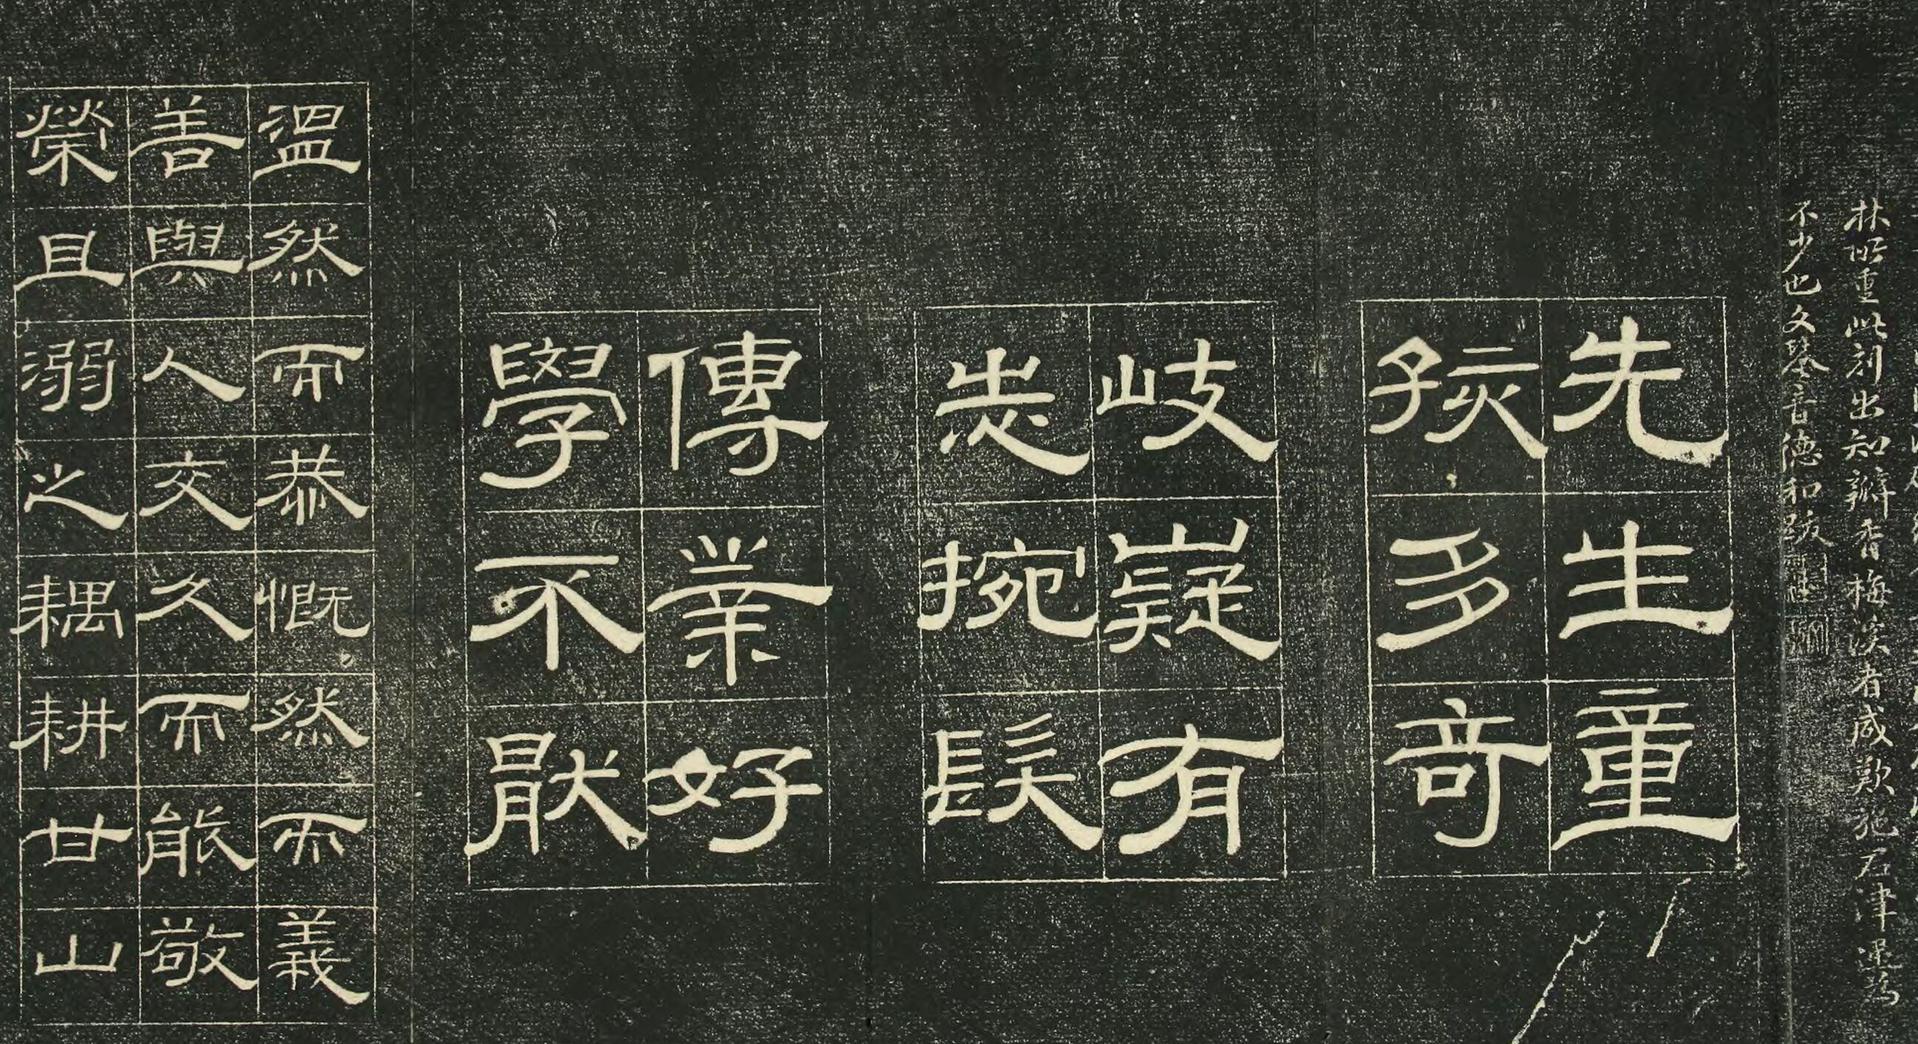 林所重此刻出知瓣香梅溪者咸歎施君津逮為
不少也文登音德和跋
先生童
孩多奇
岐嶷有
志捥髮
傳業好
學不猒
温然而恭慨然而義
善與人交久而能敬
榮且溺之耦耕甘山